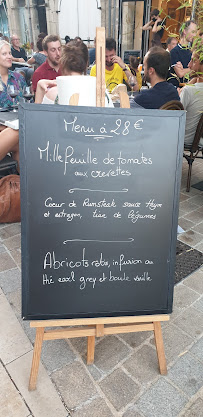 Menu à 28 €
Millefeuille de tomates
aux crevettes
Cœur de Rumsteak sauce thym
et estragon, tian de légumes
Abricots rotis, infusion au
thé earl grey et boule vanille